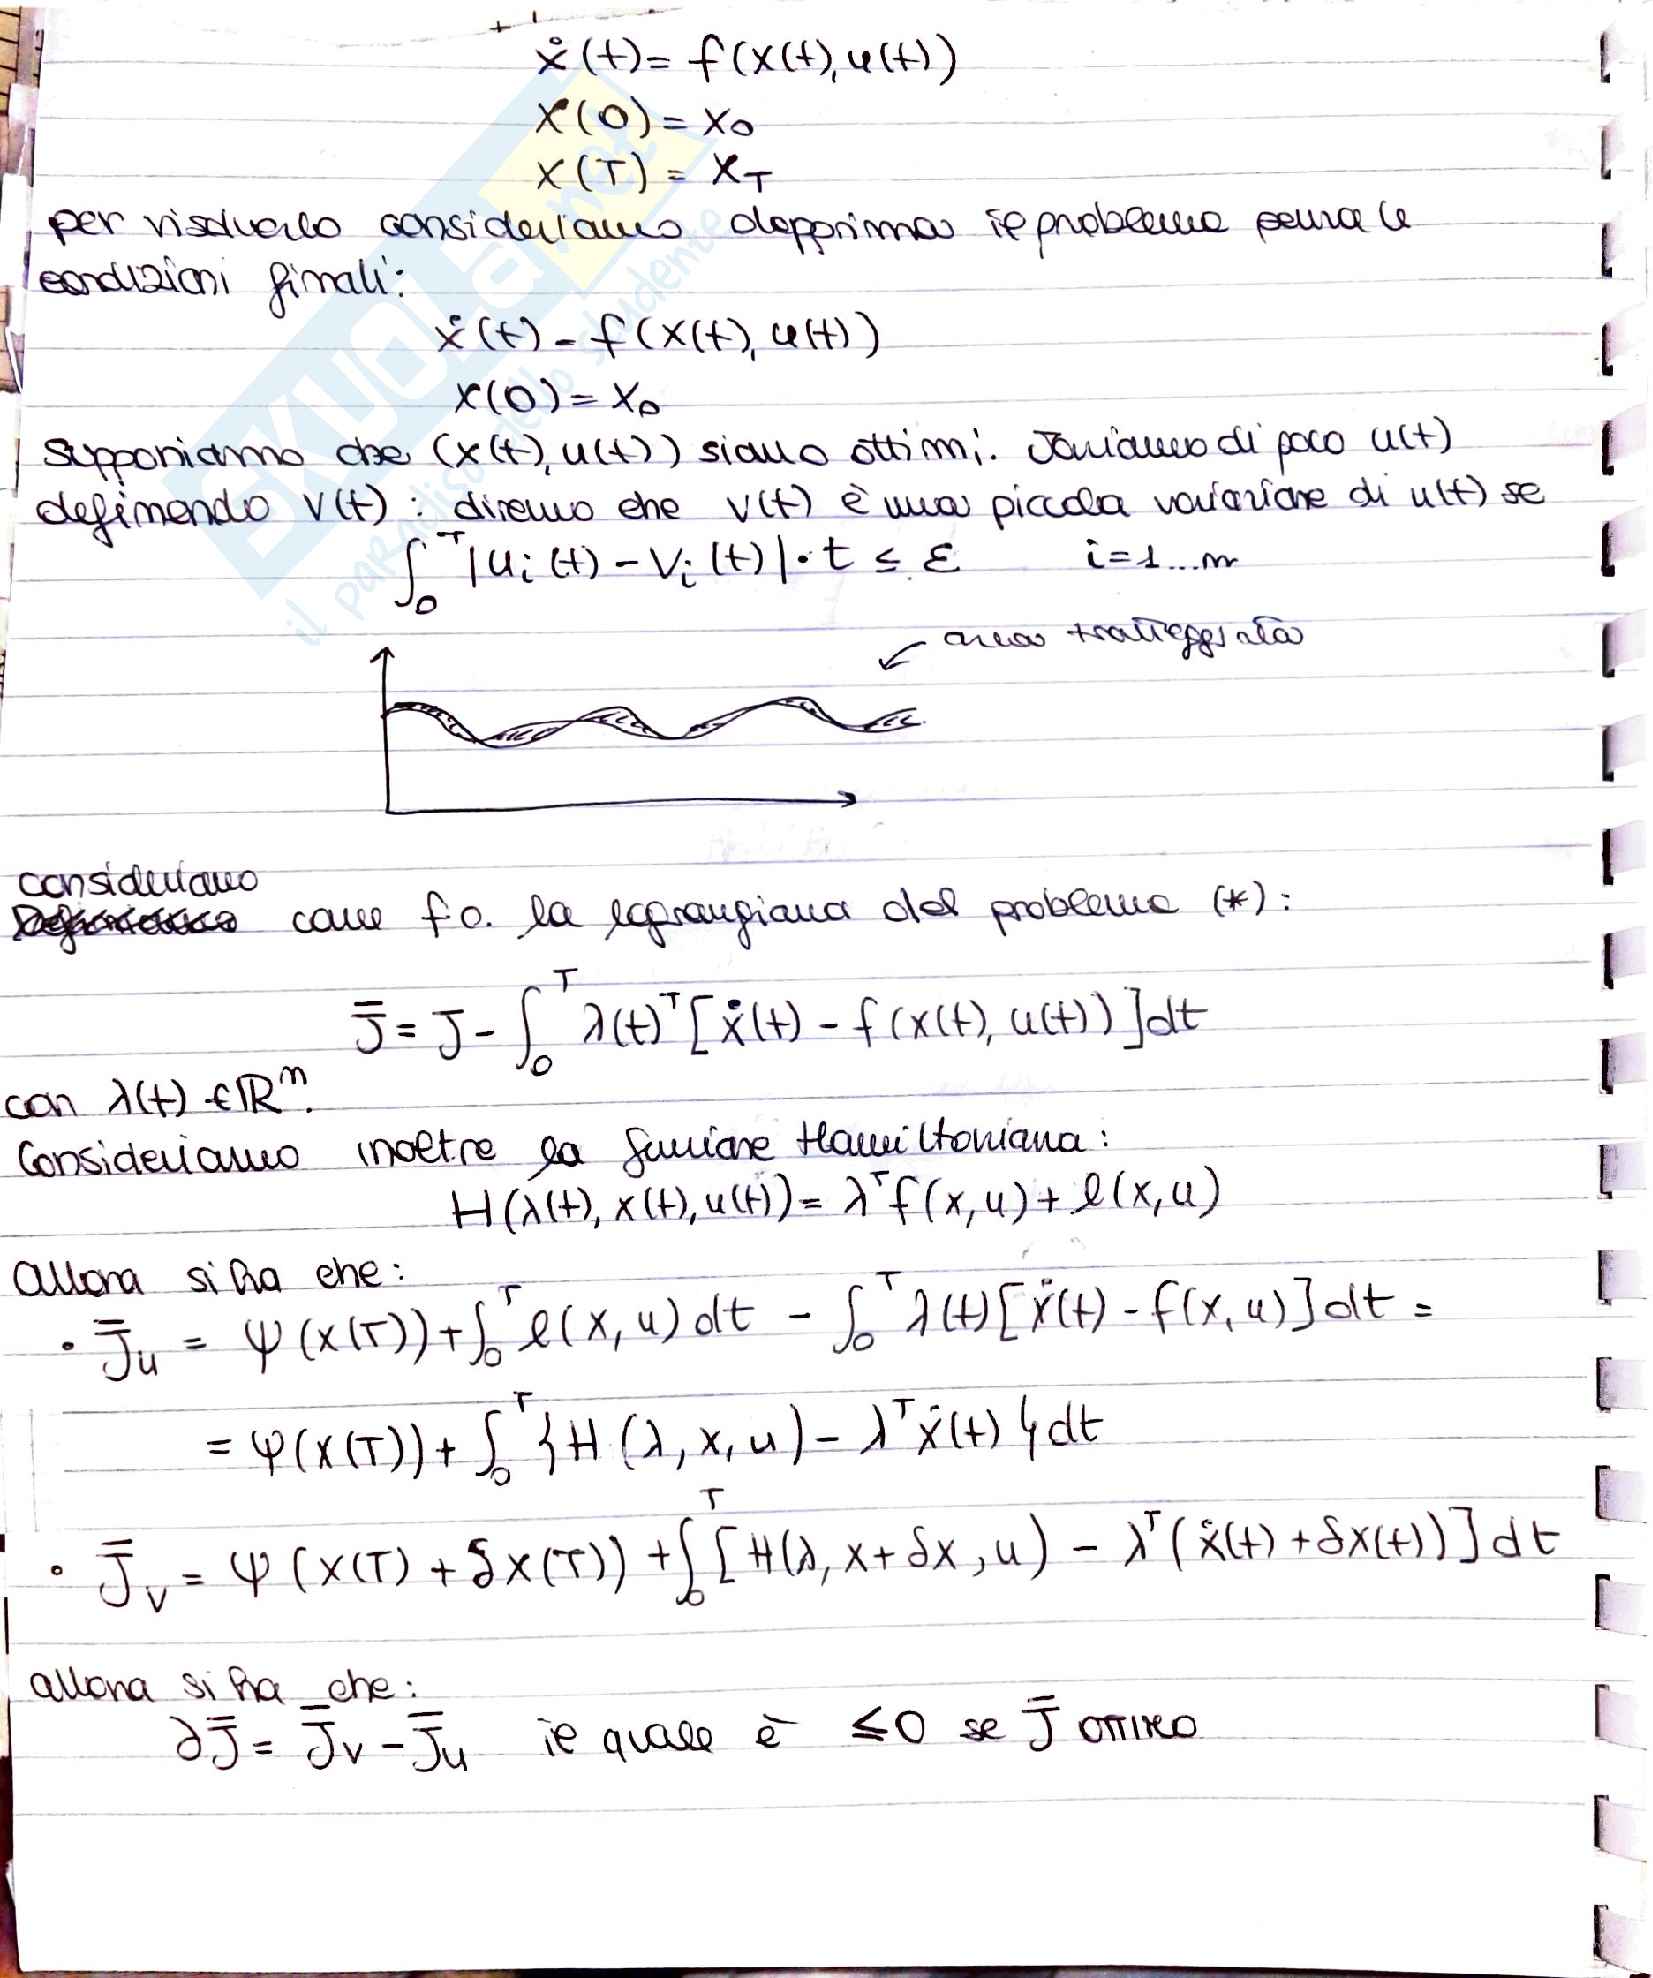 ẋ(t) = f(x(t), u(t))
x(0) = x₀
x(T) = x_T
per risolverlo consideriamo dapprima il problema senza le
condizioni finali:
ẋ(t) - f(x(t), u(t))
x(0) = x₀
Supponiamo che (x(t), u(t)) siano ottimi. Variamo di poco u(t)
definendo v(t) : diremo che v(t) è una piccola variazione di u(t) se
∫₀ᵀ |uᵢ(t) - vᵢ(t)|·t ≤ ε i=1...m
area tratteggiata
consideriamo
come f.o. la lagrangiana del problema (*):
J̄ = J - ∫₀ᵀ λ(t)ᵀ[ẋ(t) - f(x(t), u(t))]dt
con λ(t) ∈ ℝⁿ.
Consideriamo inoltre la funzione Hamiltoniana:
H(λ(t), x(t), u(t)) = λᵀf(x, u) + l(x, u)
allora si ha che:
• J̄ᵤ = ψ(x(T)) + ∫₀ᵀ l(x, u) dt - ∫₀ᵀ λ(t)[ẋ(t) - f(x, u)]dt =
= ψ(x(T)) + ∫₀ᵀ {H(λ, x, u) - λᵀẋ(t)}dt
• J̄ᵥ = ψ(x(T) + δx(T)) + ∫₀ᵀ [H(λ, x+δx, u) - λᵀ(ẋ(t) + δx(t))]dt
allora si ha che:
∂J̄ = J̄ᵥ - J̄ᵤ il quale è ≤0 se J̄ ottimo
SKUOLa.net
il paradiso dello studente